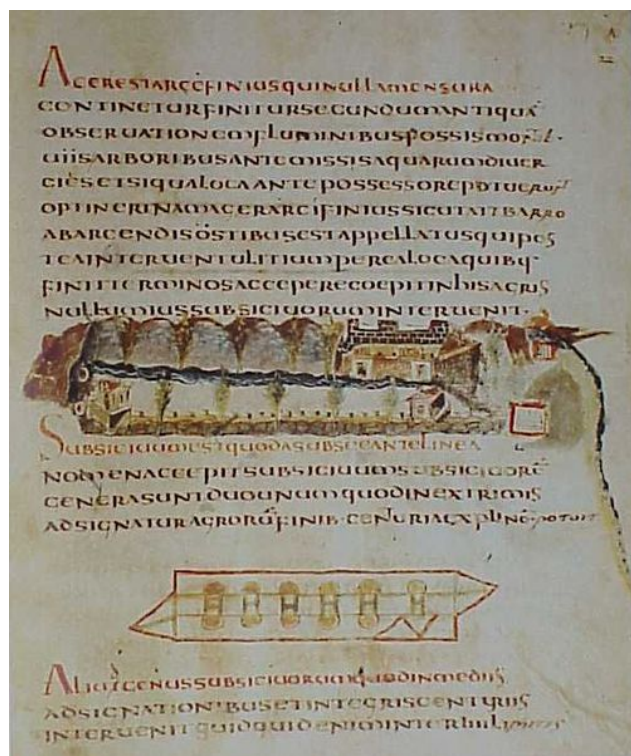 AGERESTARCIFINIUSQUINULLAMENSURA
CONTINETURFINITURSECUNDUMANTIQUA
OBSERUATIONEMFLUMINIBUSFOSSISMON
UIISARBORIBUSANTEMISSISAQUARUMDIUER
GIISETSIQUALOCAANTEPOSSESSOREPOTUERUNT
OPTINERINAMAGERARCIFINIUSSICUTAITBARRO
ABARCENDISOSTIBUSESTAPPELLATUSQUIPOS
TEAINTERUENTULITIUMPEREALOCAQUIBQ
FINITTERMINOSACCEPERECOEPITINHISAGRIS
NULLUMIUSSUBSICIUORUMINTERUENIT
SUBSICIUUMESTQUODASUBSECANTELINEA
NOMENACCEPITSUBSICIUUMSUBSICIUORU
GENERASUNTDUOUNUMQUODINEXTREMIS
ADSIGNATORUAGRORUFINIBCENTURIAEXPLENOPOTUIT
ALIUTGENUSSUBSICIUORUMQUODINMEDIIS
ADSIGNATIONIBUSETINTEGRISCENTURIIS
INTERUENITQUIDQUIDENIMINTER